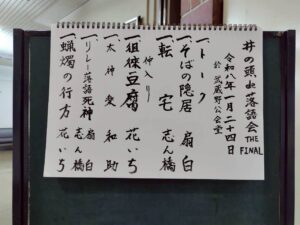 井の頭df落語会 THE FINAL
令和八年一月二十四日
於 武蔵野公会堂
一、トーク
一、そばの隠居 扇白
一、転宅 志ん橋
仲入り
一、徂徠豆腐 花いち
一、太神楽 和助
一、リレー落語死神 扇白 志ん橋
一、蝋燭の行方 花いち